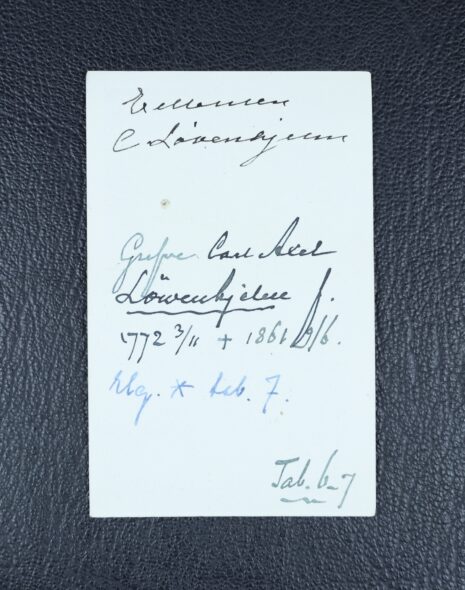 C Lövenhjelm
Grefve Carl Axel
Löwenhjelm f.
1772 3/11 + 1861 9/6.
Elg. * tab. 7.
Tab. 6-7